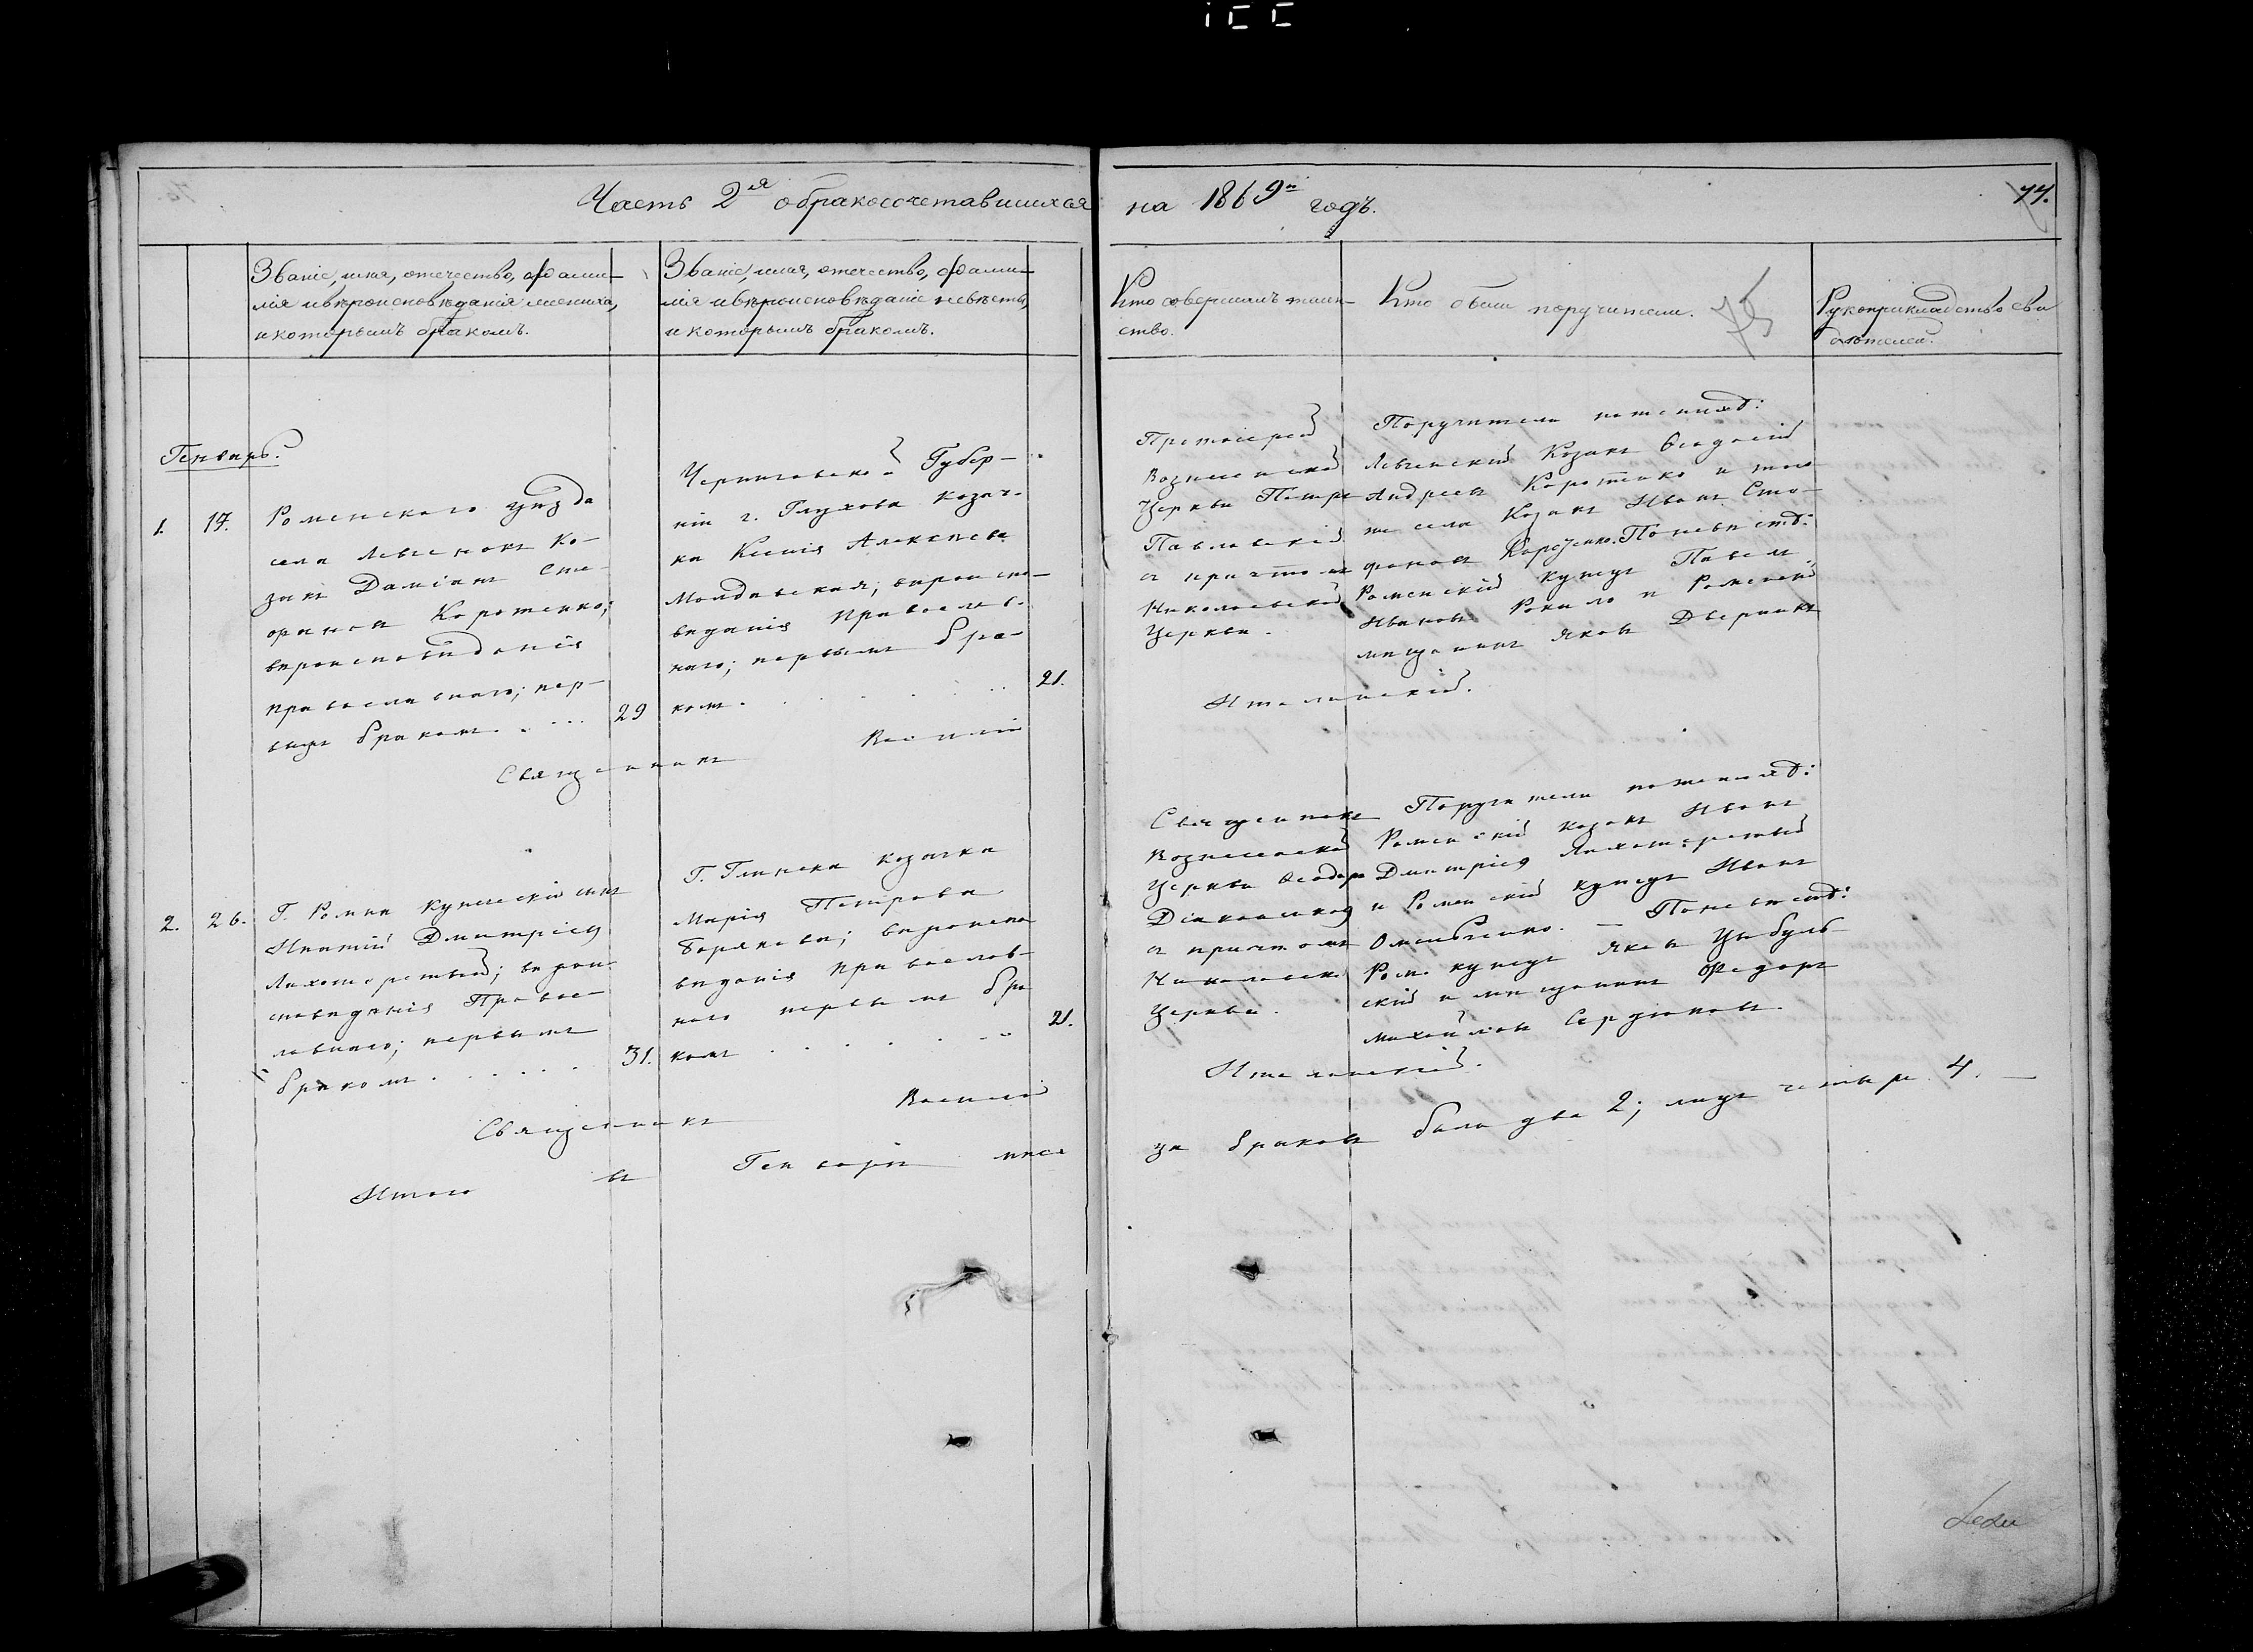 Часть 2ая о бракосочетавшихся на 1869й годъ.
77.
Званіе, имя, отечество, фами-
лія и вѣроисповѣданіе жениха,
и которымъ бракомъ.
Званіе, имя, отечество, фами-
лія и вѣроисповѣданіе невѣсты,
и которымъ бракомъ.
Кто совершалъ таин-
ство.
Кто были поручители.
Рукоприкладство сви
дѣтелей.
Генварь.
1. 17.
Роменскаго уѣзда
села Левченокъ Ко-
закъ Даміанъ Сте-
фановъ Коротенко;
вѣроисповѣданія
православнаго; пер-
вымъ бракомъ . . . . 29
Черниговской Губер-
ніи г. Глухова Козач-
ка Ксенія Алексѣева
вѣроиспо-
вѣданія Православ-
наго; первымъ бра-
комъ . . . . . 21.
Протоіерей
Вознесенской
Церкви Петръ
Павловскій
съ причтомъ
Николаевской
Церкви.
Поручители по женихѣ:
Левченскій Козакъ Ѳеодосій
Андреевъ Коротенко и того
же села Козакъ Иванъ Сте-
фановъ Коротенко. По невѣстѣ:
Роменскій купецъ Павелъ
Ивановъ и Роменскій
мѣщанинъ Яковъ
Священникъ Василій
2. 26.
Г. Ромна Купеческій сынъ
Игнатій Дмитріевъ
Лихошерстный; вѣрои-
сповѣданія Правос-
лавнаго; первымъ
бракомъ . . . . . 31.
Г. Глинска козачка
Марія Петрова
вѣроиспо
вѣданія православ-
наго первымъ бра
комъ . . . . . 21.
Священникъ
Вознесенской
Церкви Ѳеодоръ
съ причтомъ
Николаевской
Церкви.
Поручители по женихѣ:
Роменскій козакъ Иванъ
Дмитріевъ Лихошерстный
и Роменскій купецъ Иванъ
Омельченко. — По невѣстѣ:
Ром. купецъ Яковъ Цыбуль-
скій и мѣщанинъ Ѳедоръ
Михайловъ Сердюковъ.
Священникъ Василій
Итого въ Генварѣ мѣся
цѣ браковъ было два 2; лицъ четыре 4. —